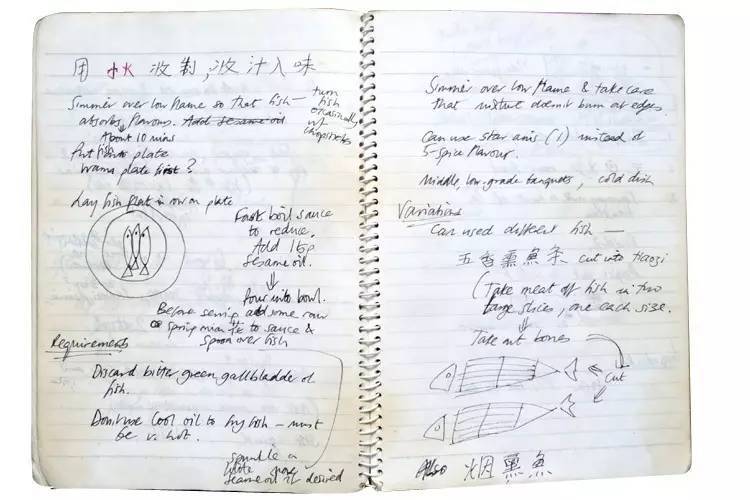 用 小火 制, 汁入味
Simmer over low flame so that fish —
absorbs flavours. Add sesame oil
turn
fish
occasionally
w/
chopsticks
About 10 mins
Put fish on plate
warm plate first?
Lay fish flat in row on plate
Fast boil sauce
to reduce.
Add 1 tsp
sesame oil.
Pour into bowl.
Before serving add some raw
spring onion to sauce &
spoon over fish
Requirements
Discard bitter green gallbladder of
fish.
Don't use cool oil to fry fish — must
be v. hot.
sprinkle a
little more
sesame oil if desired
Simmer over low flame & take care
that mixture doesn't burn at edges.
Can use star anis (1) instead of
5-spice flavour.
Middle, low-grade banquets, cold dish
Variations
Can used different fish —
五香熏魚条 cut into tiaozi
(Take meat off fish in two
large slices, one each side.
Take out bones
Cut
Also 烟熏魚